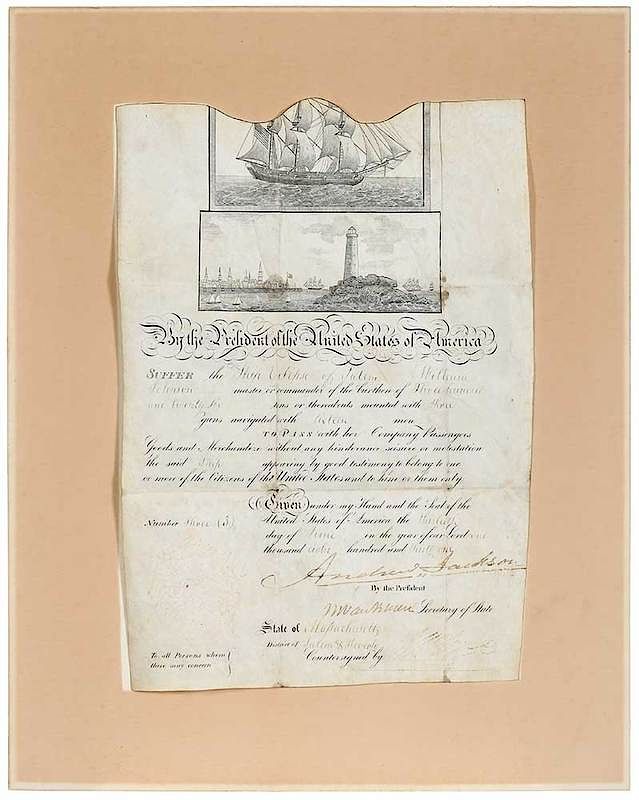 By the President of the United States of America
SUFFER the Ship Eclipse of Salem William
Johnson master or commander of the burthen of Three hundred
and twenty six tons or thereabouts mounted with Three
guns navigated with sixteen men
TO PASS with her Company Passengers
Goods and Merchandize without any hinderance seisure or molestation
the said Ship appearing by good testimony to belong to one
or more of the Citizens of the United States and to him or them only.
Given under my Hand and the Seal of the
Number Three (3) United States of America the Thirtieth
day of June in the year of our Lord one
thousand eight hundred and thirty one
Andrew Jackson
By the President
M Van Buren Secretary of State
State of Massachusetts
District of Salem & Beverly
To all Persons whom
these may concern
Countersigned by